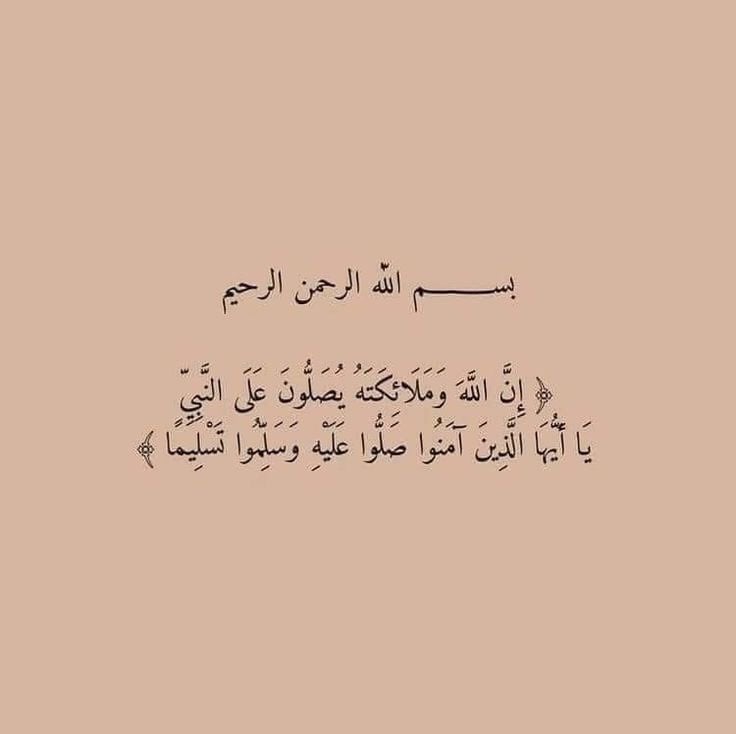 بســـــم الله الرحمن الرحيم
﴿ إِنَّ اللَّهَ وَمَلَائِكَتَهُ يُصَلُّونَ عَلَى النَّبِيِّ
يَا أَيُّهَا الَّذِينَ آمَنُوا صَلُّوا عَلَيْهِ وَسَلِّمُوا تَسْلِيمًا ﴾